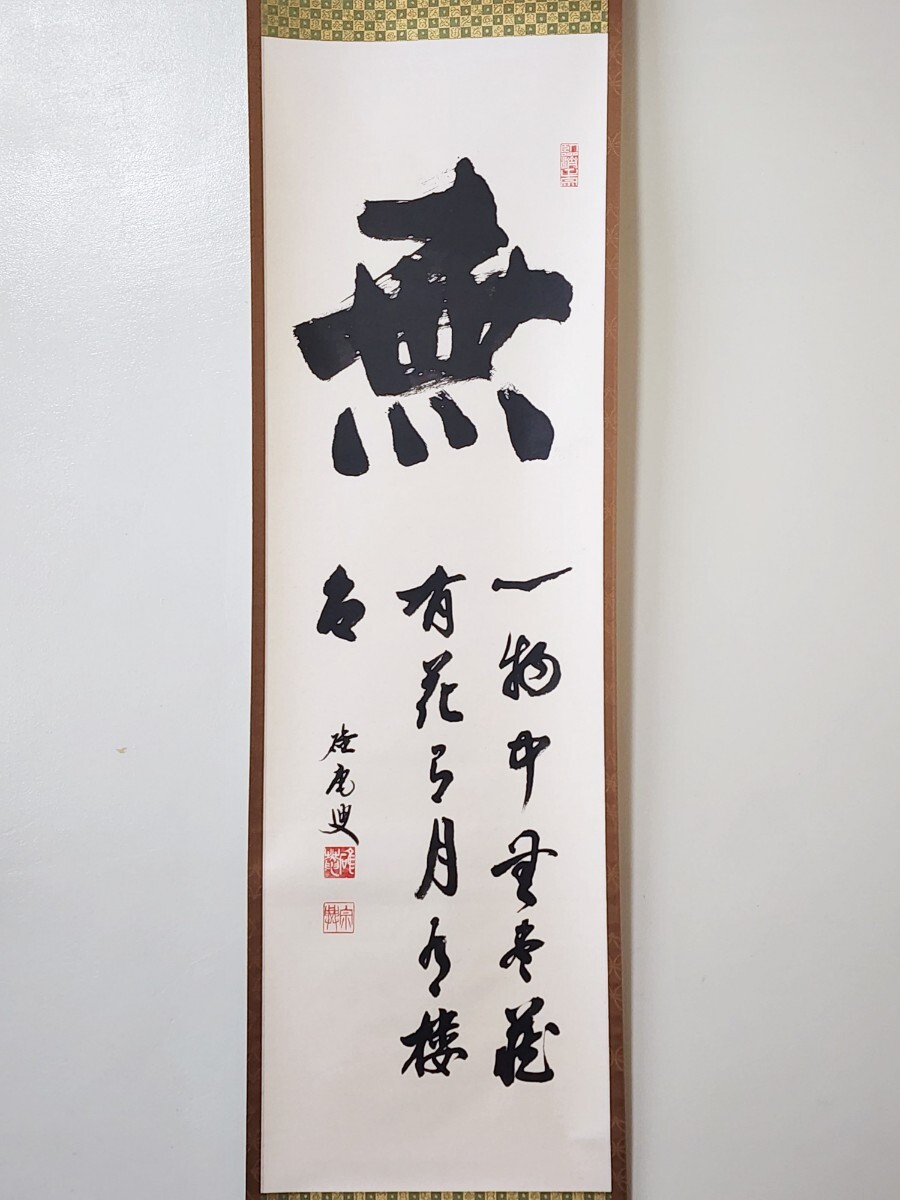 無
一物中無尽蔵
有花有月有楼
台